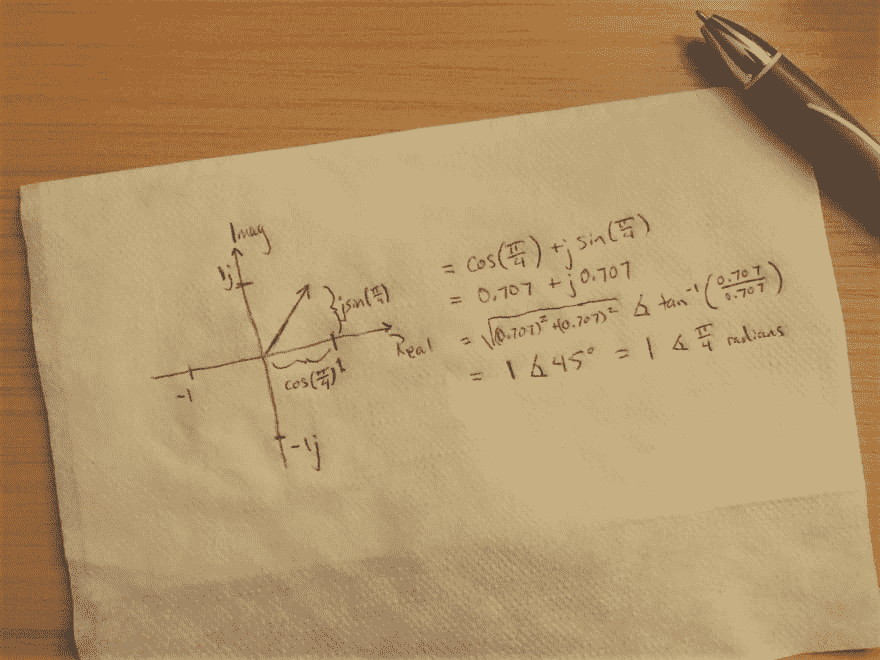 Imag
1j
jsin(π/4)
Real
-1
cos(π/4)
1
-1j
= cos(π/4) + j sin(π/4)
= 0.707 + j0.707
= √((0.707)² + (0.707)²) ∡ tan⁻¹(0.707/0.707)
= 1 ∡ 45° = 1 ∡ π/4 radians